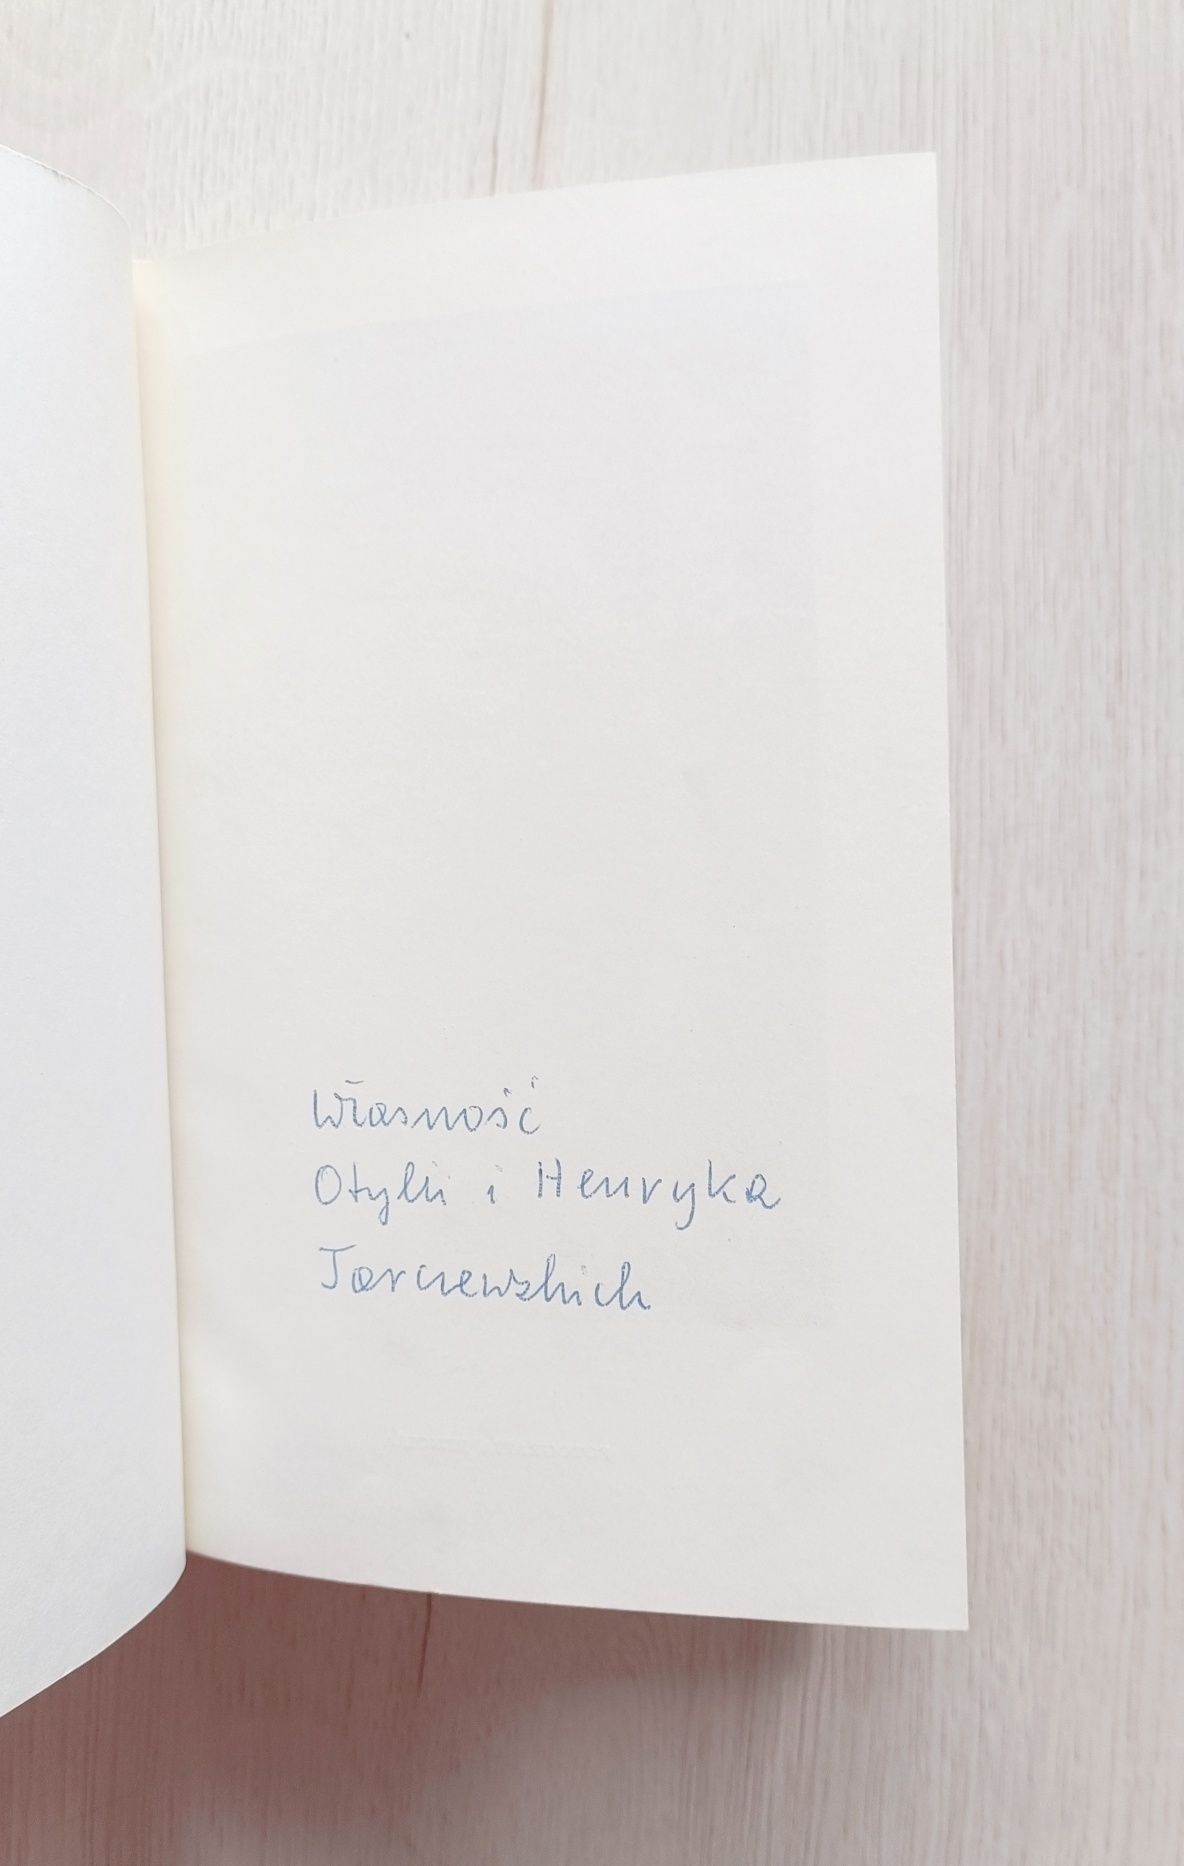 Własność
Otylii i Henryka
Jarczewskich